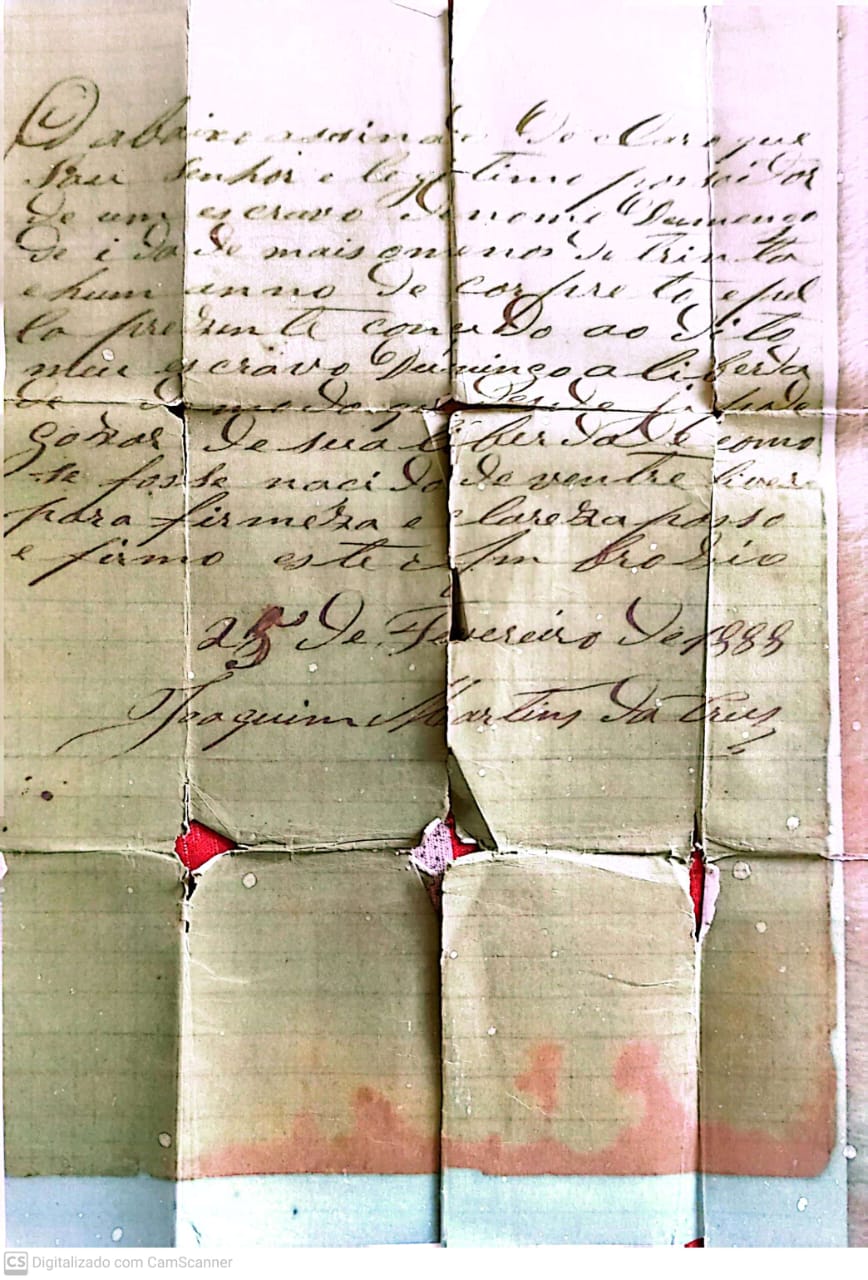 O abaixo assinado Declaro que
sou Senhor e legitimo possuidor
de um escravo de nome Dumingo
de idade mais omenos de trinta
ehum anno de cor preto epel
la prezente conçedo ao dito
meu escravo Dumingo a liberda
de de modo que desde ja pode
gozar de sua liberdade como
se fosse nacido de ventre livere
para firmeza e clareza passo
e firmo este
25 de Fevereiro de 1888
Joaquim Martins da Crus
CS Digitalizado com CamScanner